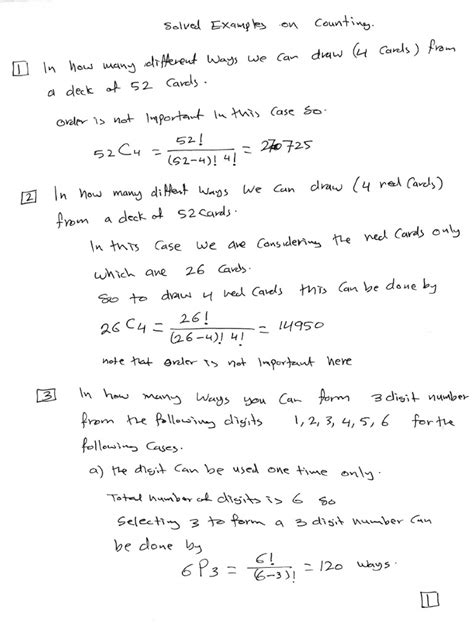 Solved Examples on Counting.
1 In how many different ways we can draw (4 cards) from
a deck of 52 Cards.
order is not Important in this case so.
52C4 = 52! / (52-4)! 4! = 270725
2 In how many diffent ways we can draw (4 red Cards)
from a deck of 52 Cards.
In this case we are Considering the red Cards only
which are 26 Cards.
So to draw 4 red Cards this can be done by
26C4 = 26! / (26-4)! 4! = 14950
note that order is not Important here
3 In how many ways you can form 3 digit number
from the following digits 1, 2, 3, 4, 5, 6 for the
following Cases.
a) the digit can be used one time only.
Total number of digits is 6 so
Selecting 3 to form a 3 digit number can
be done by
6P3 = 6! / (6-3)! = 120 ways.
1